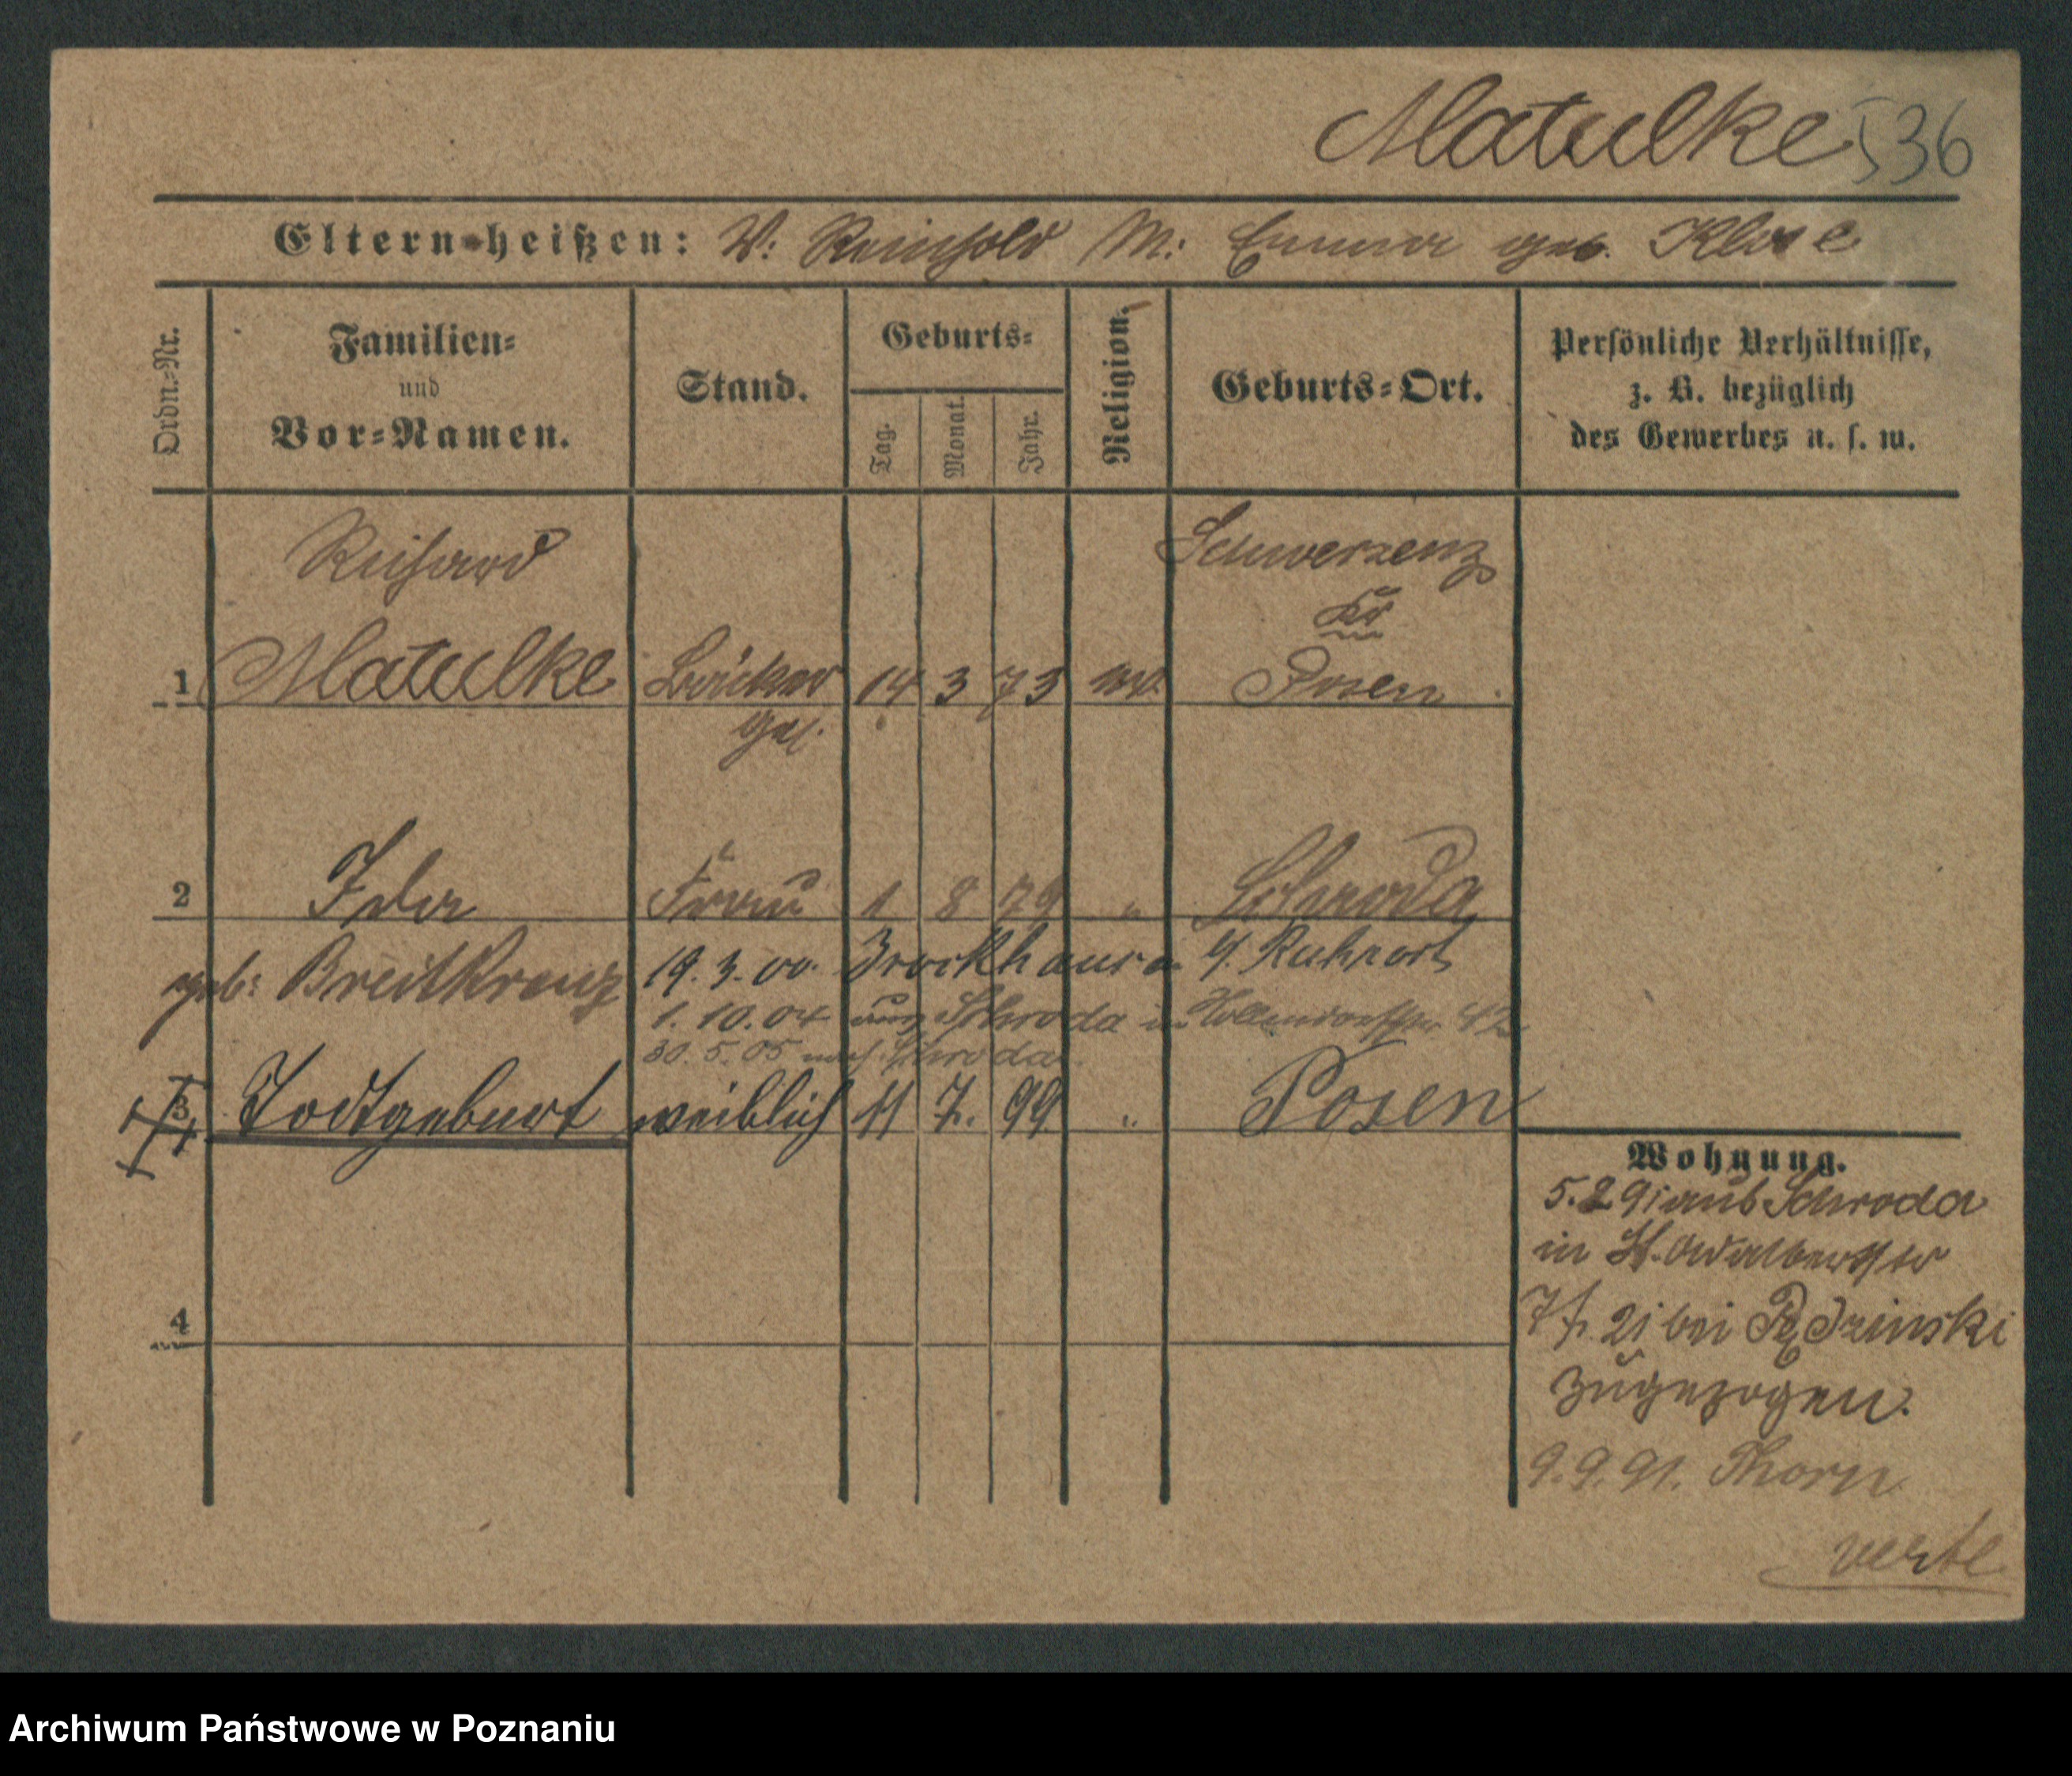 Matulke 536
Eltern heißen: V: Reinhold M: Emma geb. Klose
Ordn.-Nr.
Familien-
und
Vor-Namen.
Stand.
Geburts-
Tag.
Monat.
Jahr.
Religion.
Geburts-Ort.
Persönliche Verhältnisse,
z. B. bezüglich
des Gewerbes u. s. w.
Richard
Schwersenz
Kr
Posen
1 Matulke Bäcker 14 3 73
2 Ida Frau 1 8 79 " Schroda
geb: Breitkreuz
19.3.00. 4. Ruhrort
1.10.04 aus Schroda in 42
30.5.05 nach Schroda
3 Todtgeburt weiblich 11 7. 99 " Posen
4
Wohnung.
5. 2 91 aus Schroda
in St. Adalbertstr
21 bei
zugezogen.
9.9.91. Thorn
verte
Archiwum Państwowe w Poznaniu